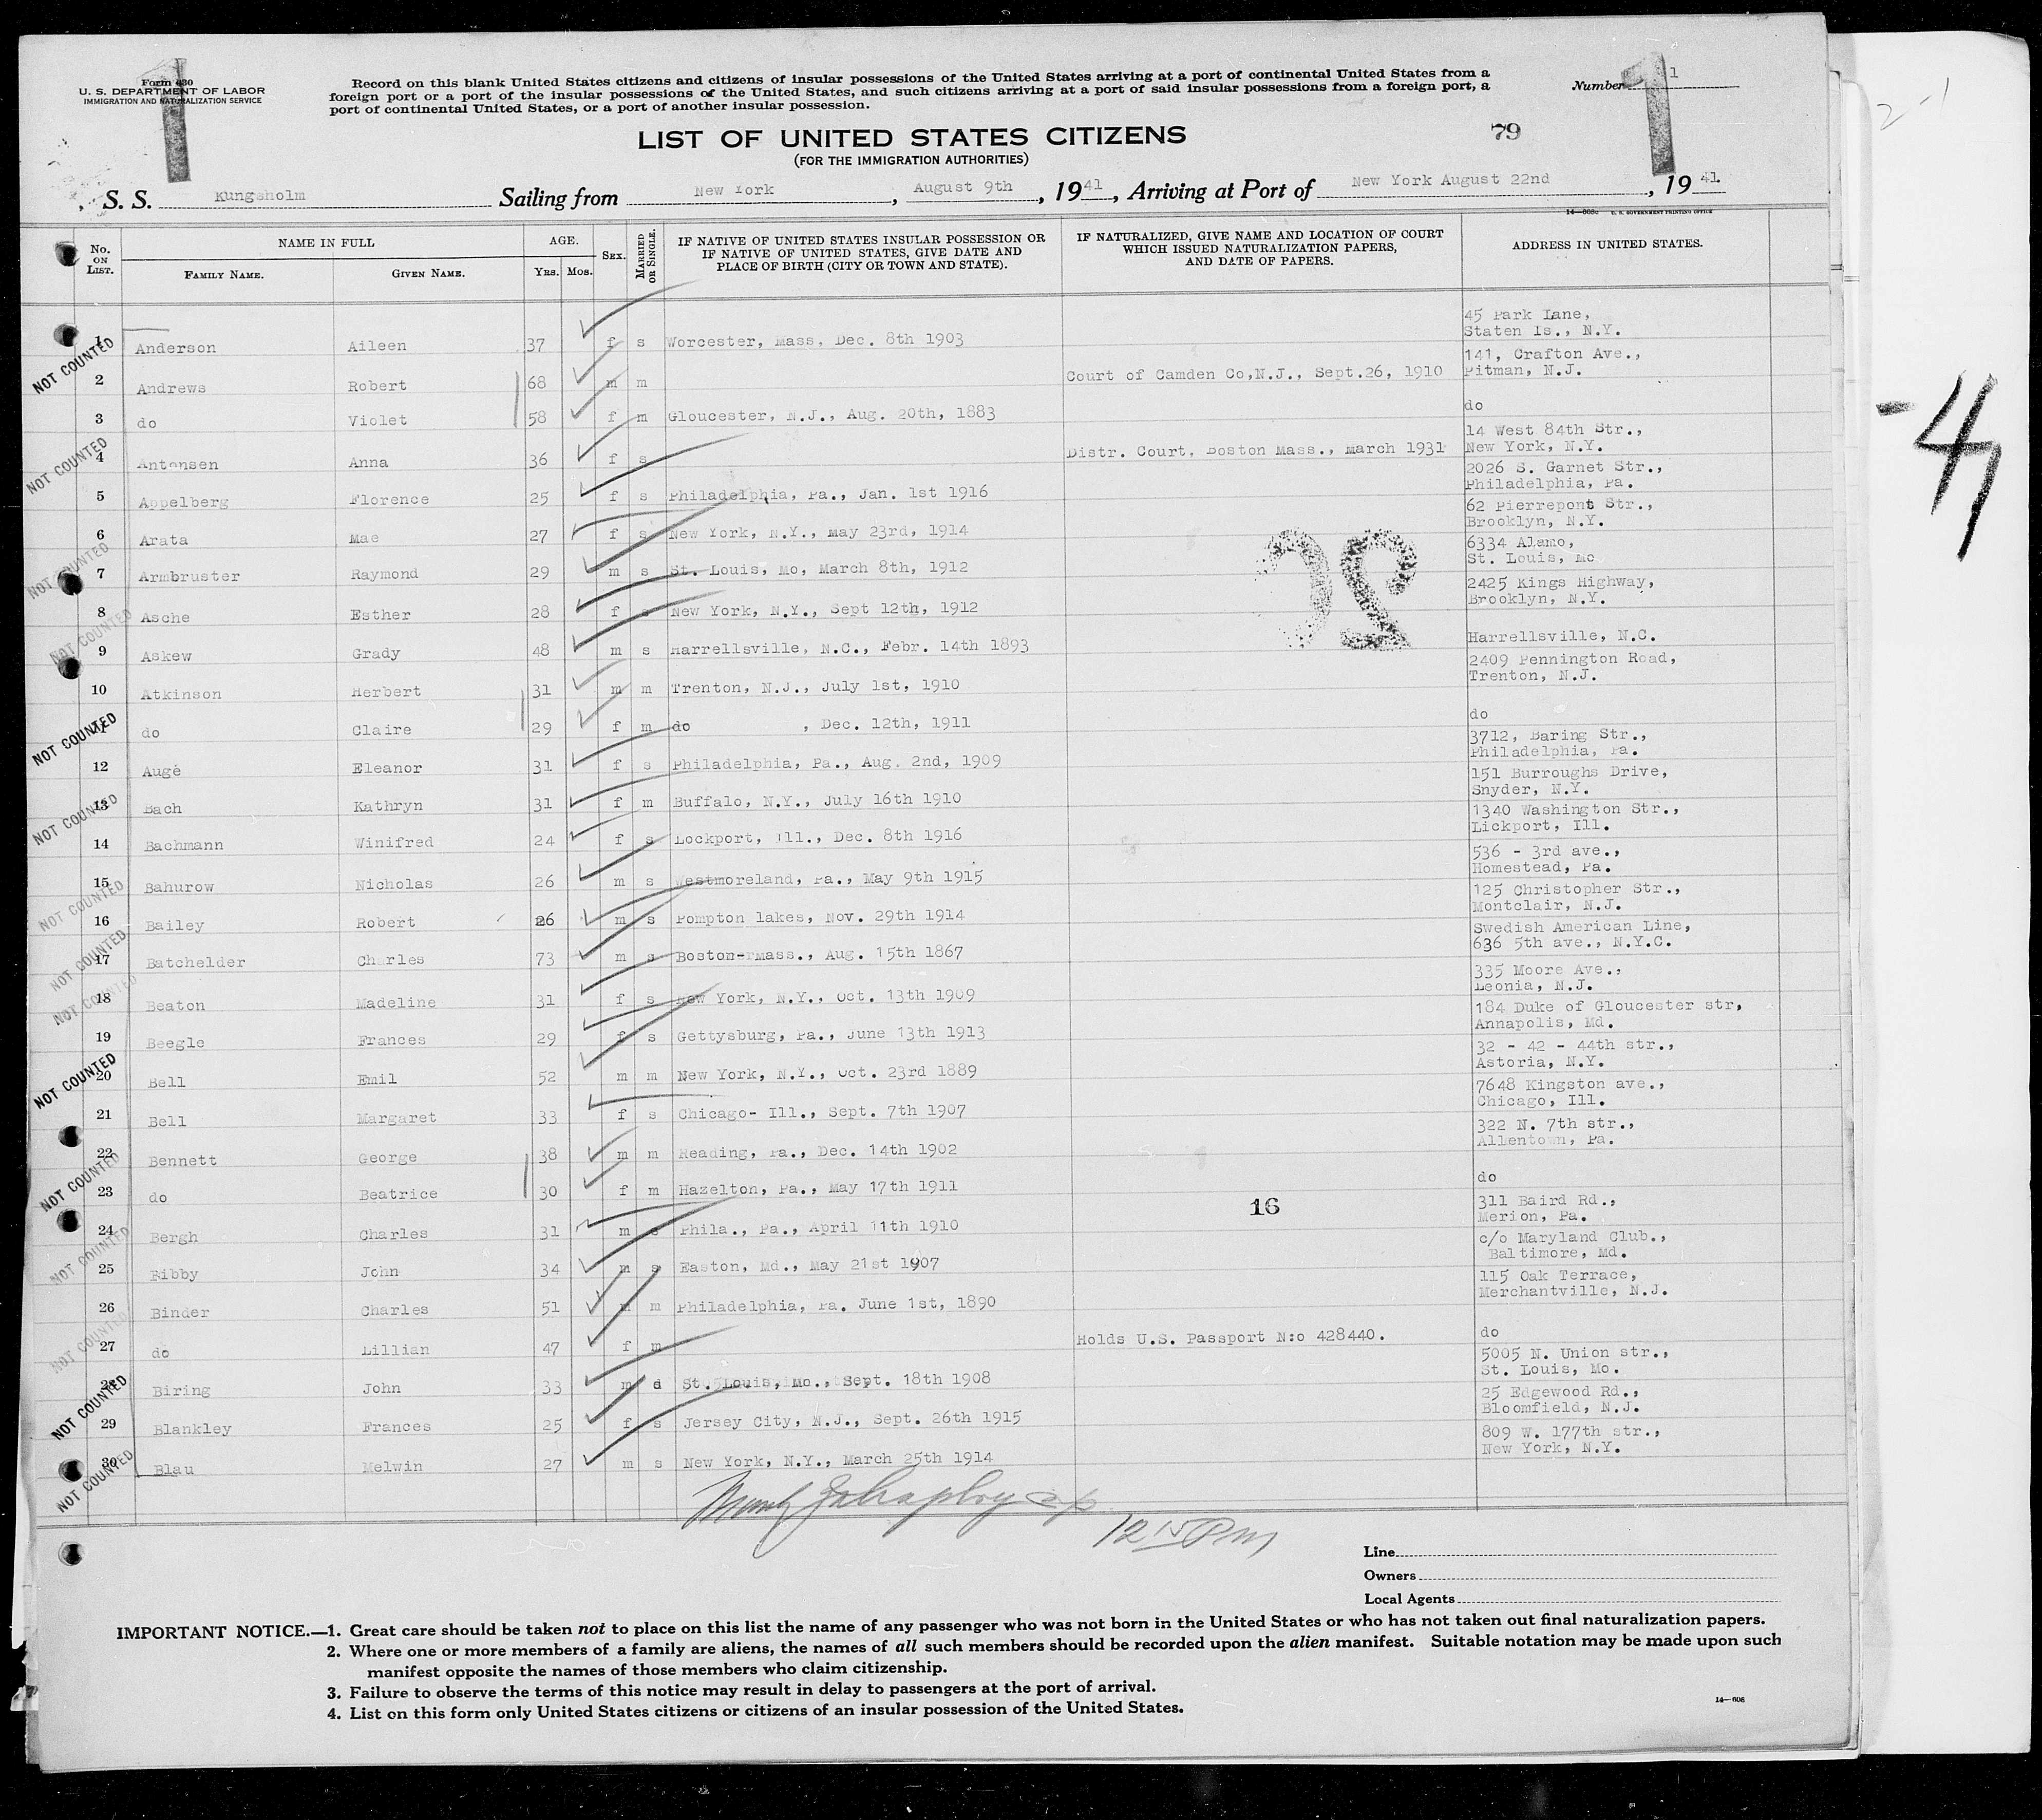 Form 630
U. S. DEPARTMENT OF LABOR
IMMIGRATION AND NATURALIZATION SERVICE
1
Record on this blank United States citizens and citizens of insular possessions of the United States arriving at a port of continental United States from a
foreign port or a port of the insular possessions of the United States, and such citizens arriving at a port of said insular possessions from a foreign port, a
port of continental United States, or a port of another insular possession.
Number 1
1
2-1
LIST OF UNITED STATES CITIZENS
79
(FOR THE IMMIGRATION AUTHORITIES)
S. S. Kungsholm Sailing from New York, August 9th, 1941, Arriving at Port of New York August 22nd, 1941
14—608c U. S. GOVERNMENT PRINTING OFFICE
No. ON LIST. NAME IN FULL FAMILY NAME. GIVEN NAME. AGE. YRS. MOS. SEX. MARRIED OR SINGLE. IF NATIVE OF UNITED STATES INSULAR POSSESSION OR IF NATIVE OF UNITED STATES, GIVE DATE AND PLACE OF BIRTH (CITY OR TOWN AND STATE). IF NATURALIZED, GIVE NAME AND LOCATION OF COURT WHICH ISSUED NATURALIZATION PAPERS, AND DATE OF PAPERS. ADDRESS IN UNITED STATES.
1 Anderson Aileen 37 f s Worcester, Mass, Dec. 8th 1903 45 Park Lane, Staten Is., N.Y.
NOT COUNTED
2 Andrews Robert 68 m m Court of Camden Co,N.J., Sept.26, 1910 141, Crafton Ave., Pitman, N.J.
3 do Violet 58 f m Gloucester, N.J., Aug. 20th, 1883 do
4 Antonsen Anna 36 f s Distr. Court, Boston Mass., March 1931 14 West 84th Str., New York, N.Y.
NOT COUNTED
5 Appelberg Florence 25 f s Philadelphia, Pa., Jan. 1st 1916 2026 S. Garnet Str., Philadelphia, Pa.
6 Arata Mae 27 f s New York, N.Y., May 23rd, 1914 62 Pierrepont Str., Brooklyn, N.Y.
7 Armbruster Raymond 29 m s St. Louis, Mo, March 8th, 1912 6334 Alamo, St. Louis, Mo
NOT COUNTED
8 Asche Esther 28 f s New York, N.Y., Sept 12th, 1912 2425 Kings Highway, Brooklyn, N.Y.
NOT COUNTED
9 Askew Grady 48 m s Harrellsville, N.C., Febr. 14th 1893 Harrellsville, N.C.
10 Atkinson Herbert 31 m m Trenton, N.J., July 1st, 1910 2409 Pennington Road, Trenton, N.J.
11 do Claire 29 f m do , Dec. 12th, 1911 do
NOT COUNTED
12 Augé Eleanor 31 f s Philadelphia, Pa., Aug. 2nd, 1909 3712, Baring Str., Philadelphia, Pa.
13 Bach Kathryn 31 f m Buffalo, N.Y., July 16th 1910 151 Burroughs Drive, Snyder, N.Y.
NOT COUNTED
14 Bachmann Winifred 24 f s Lockport, Ill., Dec. 8th 1916 1340 Washington Str., Lickport, Ill.
15 Bahurow Nicholas 26 m s Westmoreland, Pa., May 9th 1915 536 - 3rd ave., Homestead, Pa.
NOT COUNTED
16 Bailey Robert 26 m s Pompton lakes, Nov. 29th 1914 125 Christopher Str., Montclair, N.J.
17 Batchelder Charles 73 m s Boston-Mass., Aug. 15th 1867 Swedish American Line, 636 5th ave., N.Y.C.
NOT COUNTED
18 Beaton Madeline 31 f s New York, N.Y., Oct. 13th 1909 335 Moore Ave., Leonia, N.J.
NOT COUNTED
19 Beegle Frances 29 f s Gettysburg, Pa., June 13th 1913 184 Duke of Gloucester str, Annapolis, Md.
20 Bell Emil 52 m m New York, N.Y., Oct. 23rd 1889 32 - 42 - 44th str., Astoria, N.Y.
NOT COUNTED
21 Bell Margaret 33 f s Chicago- Ill., Sept. 7th 1907 7648 Kingston ave., Chicago, Ill.
22 Bennett George 38 m m Reading, Pa., Dec. 14th 1902 322 N. 7th str., Allentown, Pa.
NOT COUNTED
23 do Beatrice 30 f m Hazelton, Pa., May 17th 1911 do
16
24 Bergh Charles 31 m s Phila., Pa., April 11th 1910 311 Baird Rd., Merion, Pa.
NOT COUNTED
25 Bibby John 34 m s Easton, Md., May 21st 1907 c/o Maryland Club., Baltimore, Md.
26 Binder Charles 51 m m Philadelphia, Pa. June 1st, 1890 115 Oak Terrace, Merchantville, N.J.
NOT COUNTED
27 do Lillian 47 f m Holds U.S. Passport N:o 428440. do
28 Biring John 33 m d St. Louis, Mo., Sept. 18th 1908 5005 N. Union str., St. Louis, Mo.
NOT COUNTED
29 Blankley Frances 25 f s Jersey City, N.J., Sept. 26th 1915 25 Edgewood Rd., Bloomfield, N.J.
30 Blau Melwin 27 m s New York, N.Y., March 25th 1914 809 W. 177th str., New York, N.Y.
NOT COUNTED
12 15 PM
Line
Owners
Local Agents
IMPORTANT NOTICE.—1. Great care should be taken not to place on this list the name of any passenger who was not born in the United States or who has not taken out final naturalization papers.
2. Where one or more members of a family are aliens, the names of all such members should be recorded upon the alien manifest. Suitable notation may be made upon such
manifest opposite the names of those members who claim citizenship.
3. Failure to observe the terms of this notice may result in delay to passengers at the port of arrival.
14—608
4. List on this form only United States citizens or citizens of an insular possession of the United States.